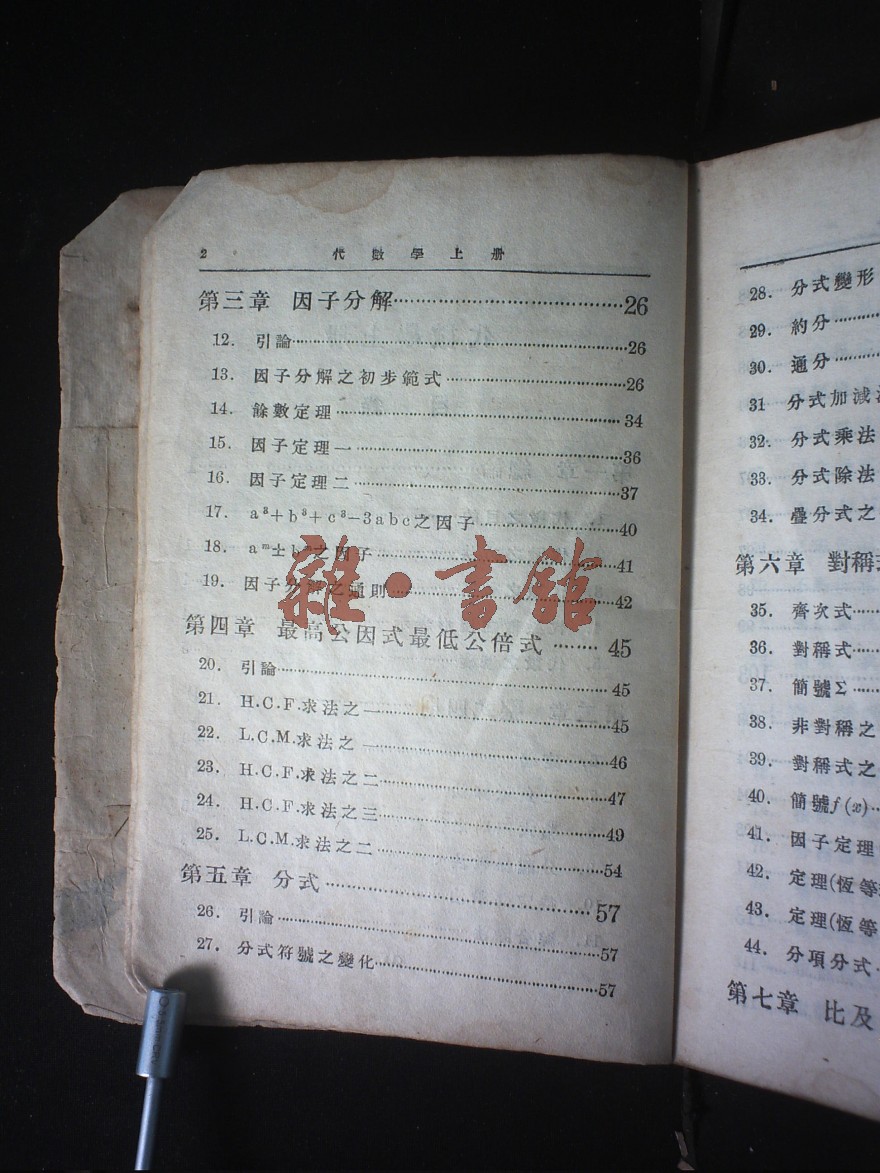 2 代數學上册
第三章 因子分解 26
12. 引論 26
13. 因子分解之初步範式 26
14. 餘數定理 34
15. 因子定理一 36
16. 因子定理二 37
17. a³+b³+c³-3abc之因子 40
18. aᵐ±bᵐ之因子 41
19. 因子分解之通則 42
第四章 最高公因式最低公倍式 45
20. 引論 45
21. H.C.F.求法之一 45
22. L.C.M.求法之一 46
23. H.C.F.求法之二 47
24. H.C.F.求法之三 49
25. L.C.M.求法之二 54
第五章 分式 57
26. 引論 57
27. 分式符號之變化 57
雜·書館
28. 分式變形
29. 約分
30. 通分
31 分式加減
32. 分式乘法
33. 分式除法
34. 疊分式之
第六章 對稱
35. 齊次式
36. 對稱式
37. 簡號Σ
38. 非對稱之
39. 對稱式之
40. 簡號f(x)
41. 因子定理
42. 定理(恆等
43. 定理(恆等
44. 分項分式
第七章 比及